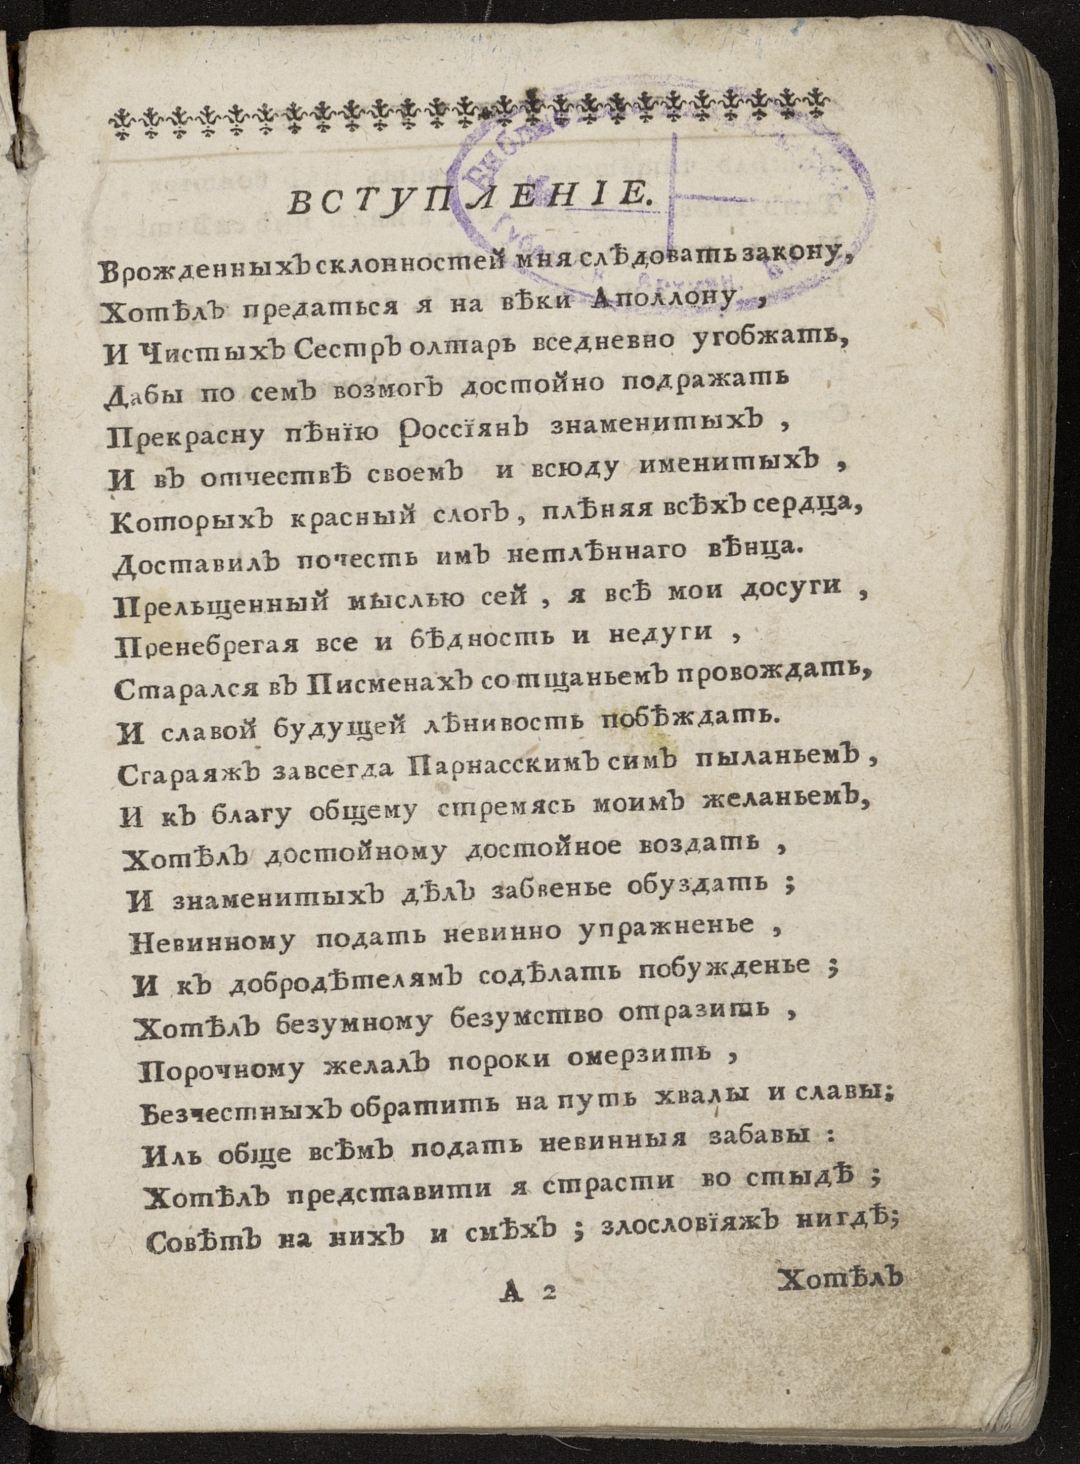 ВСТУПЛЕНІЕ.
Врожденныхъ склонностей мня слѣдовать закону,
Хотѣлъ предаться я на вѣки Аполлону ,
И Чистыхъ Сестръ олтарь вседневно угобжать,
Дабы по семъ возмогъ достойно подражать
Прекрасну пѣнїю Россїянъ знаменитыхъ ,
И въ отчествѣ своемъ и всюду именитыхъ ,
Которыхъ красный слогъ, плѣняя всѣхъ сердца,
Доставилъ почесть имъ нетлѣннаго вѣнца.
Прельщенный мыслью сей , я всѣ мои досуги ,
Пренебрегая все и бѣдность и недуги ,
Старался въ Писменахъ со тщаньемъ провождать,
И славой будущей лѣнивость побѣждать.
Стараяжъ завсегда Парнасскимъ симъ пыланьемъ ,
И къ благу общему стремясь моимъ желаньемъ,
Хотѣлъ достойному достойное воздать ,
И знаменитыхъ дѣлъ забвенье обуздать ;
Невинному подать невинно упражненье ,
И къ добродѣтелямъ содѣлать побужденье ;
Хотѣлъ безумному безумство отразить ,
Порочному желалъ пороки омерзить ,
Безчестныхъ обратить на путь хвалы и славы;
Иль обще всѣмъ подать невинныя забавы :
Хотѣлъ представити я страсти во стыдѣ ;
Совѣтъ на нихъ и смѣхъ ; злословїяжъ нигдѣ;
А 2
Хотѣлъ